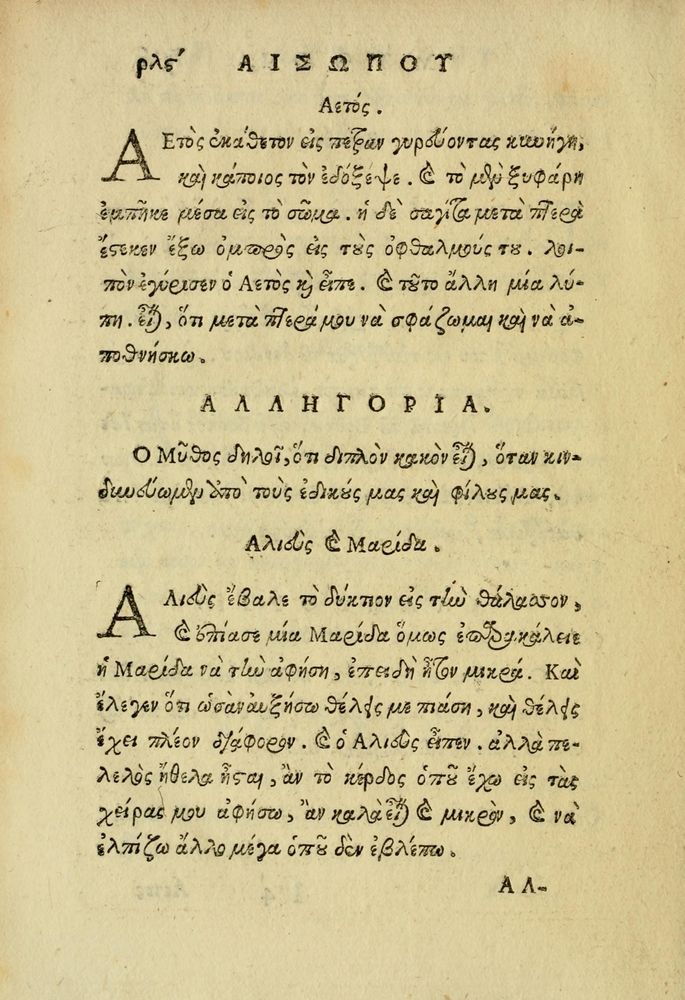 ρλς΄ ΑΙΣΩΠΟΥ
Αετός.
ΑΕτὸς ἐκάθετον εἰς πέτραν γυρεύοντας κυνήγη,
καὶ κάποιος τὸν ἐδόξεψε. καὶ τὸ μὲν ξυφάρη
ἐμπῆκε μέσα εἰς τὸ σῶμα. ἡ δὲ σαγίτα μετὰ πτερὰ
ἔστεκεν ἔξω ὀμπρὸς εἰς τοὺς ὀφθαλμούς του. λοι-
πὸν ἐγύρισεν ὁ Αετὸς καὶ εἶπε. καὶ τοῦτο ἄλλη μία λύ-
πη. εἶναι, ὅτι μετὰ πτερά μου νὰ σφάζωμαι καὶ νὰ ἀ-
ποθνήσκω.
ΑΛΛΗΓΟΡΙΑ.
Ο Μῦθος δηλοῖ, ὅτι διπλὸν κακὸν εἶναι, ὅταν κιν-
δυνεύωμεν ἀπὸ τοὺς ἐδικούς μας καὶ φίλους μας.
Αλιεὺς καὶ Μαρίδα.
ΑΛιεὺς ἔβαλε τὸ δύκτιον εἰς τὴν θάλασσαν,
καὶ ἐπίασε μία Μαρίδα ὅμως ἐπαρακάλειε
ἡ Μαρίδα νὰ τὴν ἀφήσῃ, ἐπειδὴ ἦτον μικρά. Καὶ
ἔλεγεν ὅτι ὡσὰν αὐξήσω θέλεις με πιάσῃ, καὶ θέλεις
ἔχει πλέον διάφορον. καὶ ὁ Αλιεὺς εἶπεν. ἀλλὰ πε-
λελὸς ἤθελα ἦσται, ἂν τὸ κέρδος ὁποῦ ἔχω εἰς τὰς
χεῖρας μου ἀφήσω, ἂν καλὰ εἶναι καὶ μικρὸν, καὶ νὰ
ἐλπίζω ἄλλο μέγα ὁποῦ δὲν ἐβλέπω.
ΑΛ-